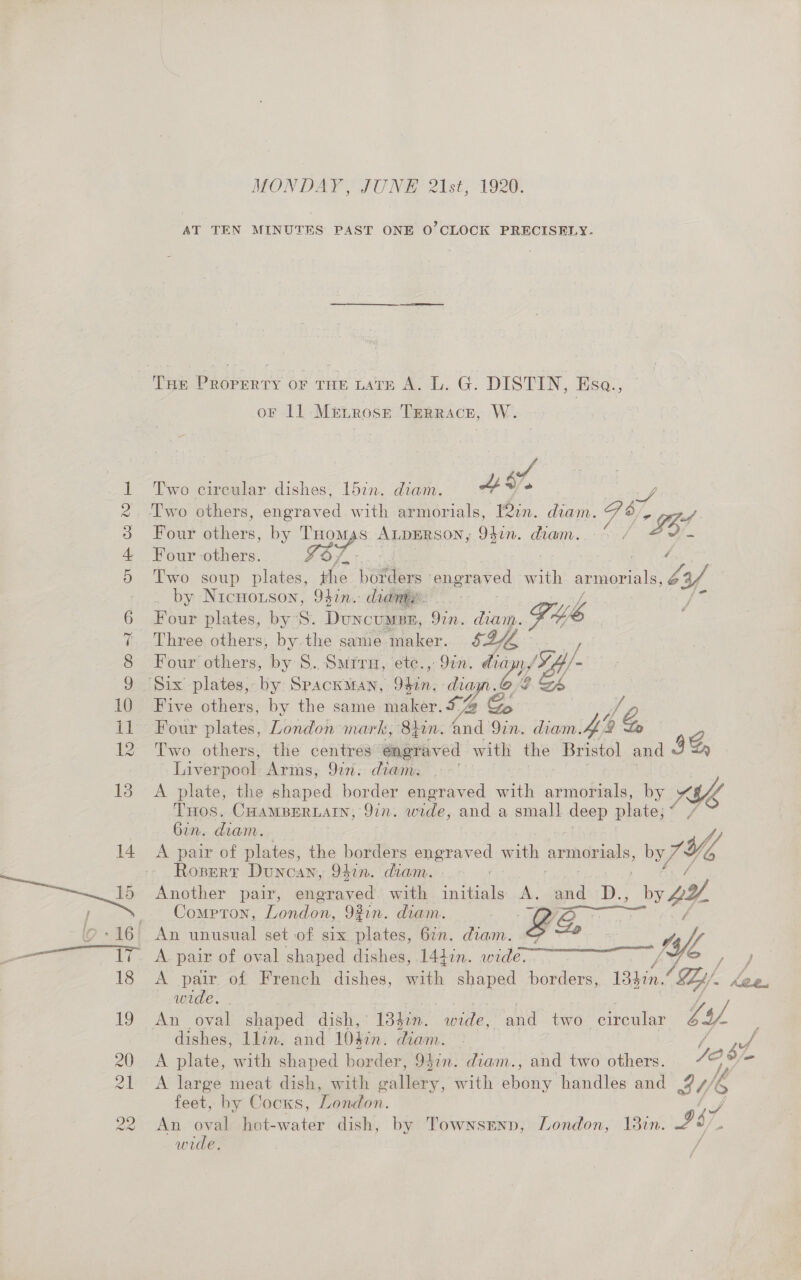 MONDAY, JUNE 21st, 1920.
AT TEN MINUTES PAST ONE O'CLOCK PRECISELY.
THE PROPERTY OF THE LATE A. L. G. DISTIN, ESQ.,
OF 11 MELROSE TERRACE, W.
1 Two circular dishes, 15in. diam.
2 Two others, engraved with armorials, 12in. diam.
3 Four others, by THOMAS ALDERSON, 9½in. diam.
4 Four others.
5 Two soup plates, the borders engraved with armorials,
by NICHOLSON, 9½in. diam.
6 Four plates, by S. DUNCUMBE, 9in. diam.
7 Three others, by the same maker.
8 Four others, by S. SMITH, etc., 9in. diam.
9 Six plates, by SPACKMAN, 9½in. diam.
10 Five others, by the same maker.
11 Four plates, London mark, 8½in. and 9in. diam.
12 Two others, the centres engraved with the Bristol and
Liverpool Arms, 9in. diam.
13 A plate, the shaped border engraved with armorials, by
THOS. CHAMBERLAIN, 9in. wide, and a small deep plate,
6in. diam.
14 A pair of plates, the borders engraved with armorials, by
ROBERT DUNCAN, 9½in. diam.
15 Another pair, engraved with initials A. and D., by
COMPTON, London, 9¾in. diam.
16 An unusual set of six plates, 6in. diam.
17 A pair of oval shaped dishes, 14½in. wide.
18 A pair of French dishes, with shaped borders, 13½in.
wide.
19 An oval shaped dish, 13½in. wide, and two circular
dishes, 11in. and 10½in. diam.
20 A plate, with shaped border, 9½in. diam., and two others.
21 A large meat dish, with gallery, with ebony handles and
feet, by COCKS, London.
22 An oval hot-water dish, by TOWNSEND, London, 13in.
wide.